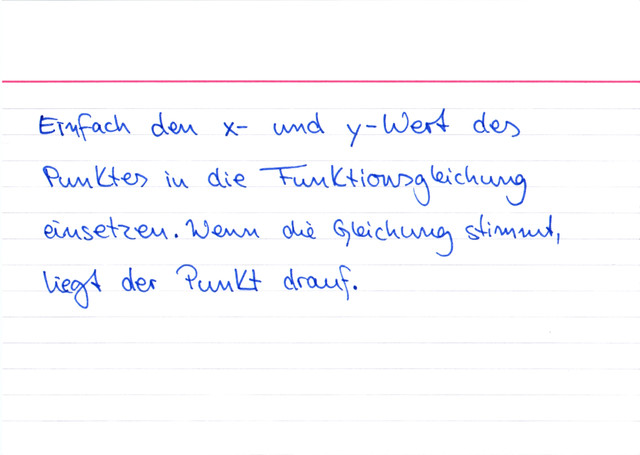 Einfach den x- und y-Wert des
Punktes in die Funktionsgleichung
einsetzen. Wenn die Gleichung stimmt,
liegt der Punkt drauf.